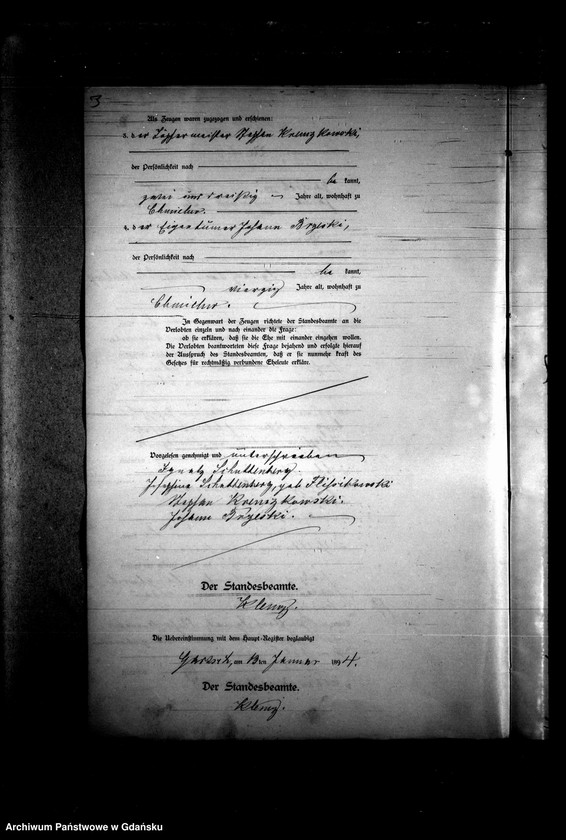 3
Als Zeugen waren zugezogen und erschienen:
3. der Töpfermeister Stephan Krenzkowski,
der Persönlichkeit nach
be kannt,
zwei und dreißig Jahre alt, wohnhaft zu
Chmielno.
4. der Eigentümer Johann Bryeski,
der Persönlichkeit nach
be kannt,
vierzig Jahre alt, wohnhaft zu
Chmielno.
In Gegenwart der Zeugen richtete der Standesbeamte an die
Verlobten einzeln und nach einander die Frage:
ob sie erklären, daß sie die Ehe mit einander eingehen wollen.
Die Verlobten beantworteten diese Frage bejahend und erfolgte hierauf
der Ausspruch des Standesbeamten, daß er sie nunmehr kraft des
Gesetzes für rechtmäßig verbundene Eheleute erkläre.
Vorgelesen genehmigt und unterschrieben
Ignatz Schuttenberg.
Josephine Schuttenberg, geb.
Stephan Krenzkowski.
Johann Bryeski.
Der Standesbeamte.
Klenz.
Die Uebereinstimmung mit dem Haupt-Register beglaubigt
am 13ten Januar 1894.
Der Standesbeamte.
Klenz.
Archiwum Państwowe w Gdańsku